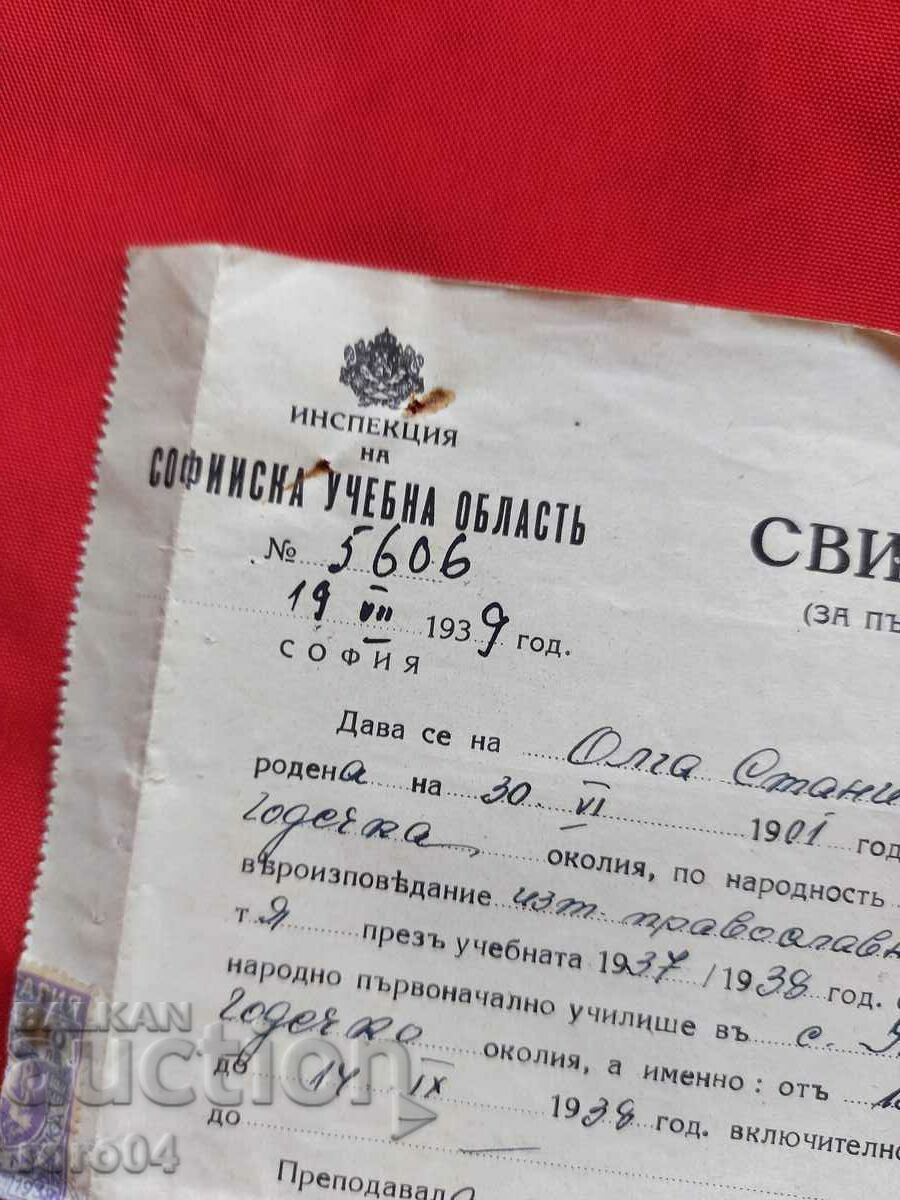 ИНСПЕКЦИЯ
НА
СОФИЙСКА УЧЕБНА ОБЛАСТЬ
№ 5606
19 VII 1939 год.
СОФИЯ
СВИ
(ЗА ПЪ
Дава се на Олга Стани
родена на 30 VI 1901 год
Годечка, околия, по народность
вѣроизповѣдание изт. православн
тя презъ учебната 1937/1938 год.
народно първоначално училище въ с.
Годечко околия, а именно: отъ
до 14 IX 1938 год. включително
до —
Преподавала
BALKAN
auction
soro04